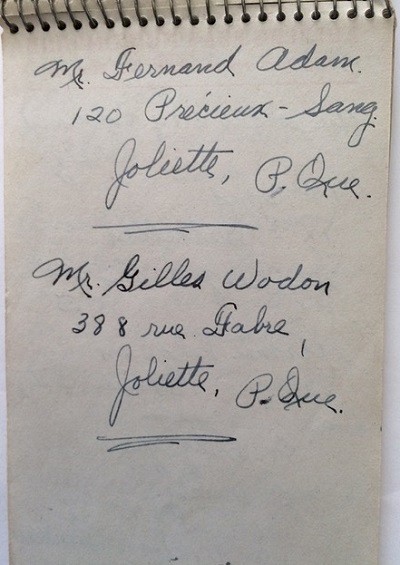 Mr. Fernand Adam.
120 Précieux-Sang
Joliette, P. Que.
Mr. Gilles Wodon
388 rue Fabre,
Joliette, P. Que.